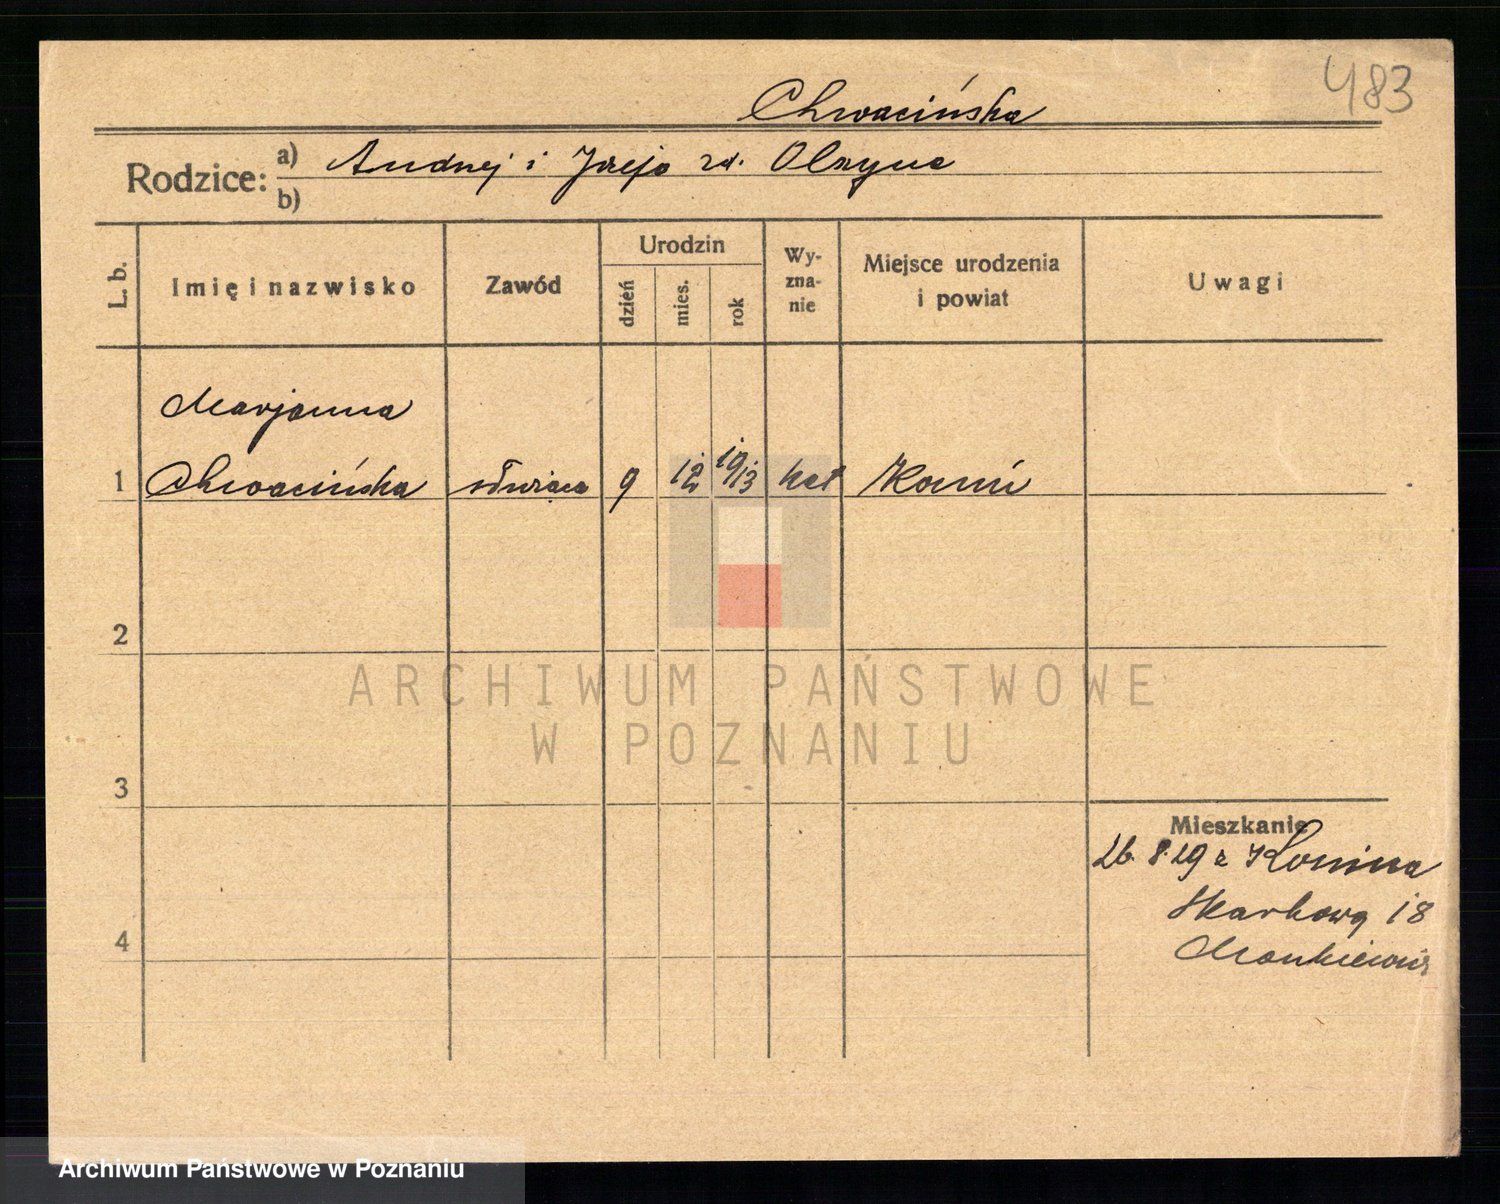 483
Chwacińska
Rodzice: a) Andrzej i Józefa zd. Olszyna
b)
L. b.
Imię i nazwisko
Zawód
Urodzin
dzień
mies.
rok
Wy-
zna-
nie
Miejsce urodzenia
i powiat
Uwagi
Marjanna
1 Chwacińska służąca 9 12 1913 kat Konin
2
3
4
Mieszkanie
26.8.29 z Konina
Skarbowa 18
Mankiewicz
ARCHIWUM PAŃSTWOWE
W POZNANIU
Archiwum Państwowe w Poznaniu